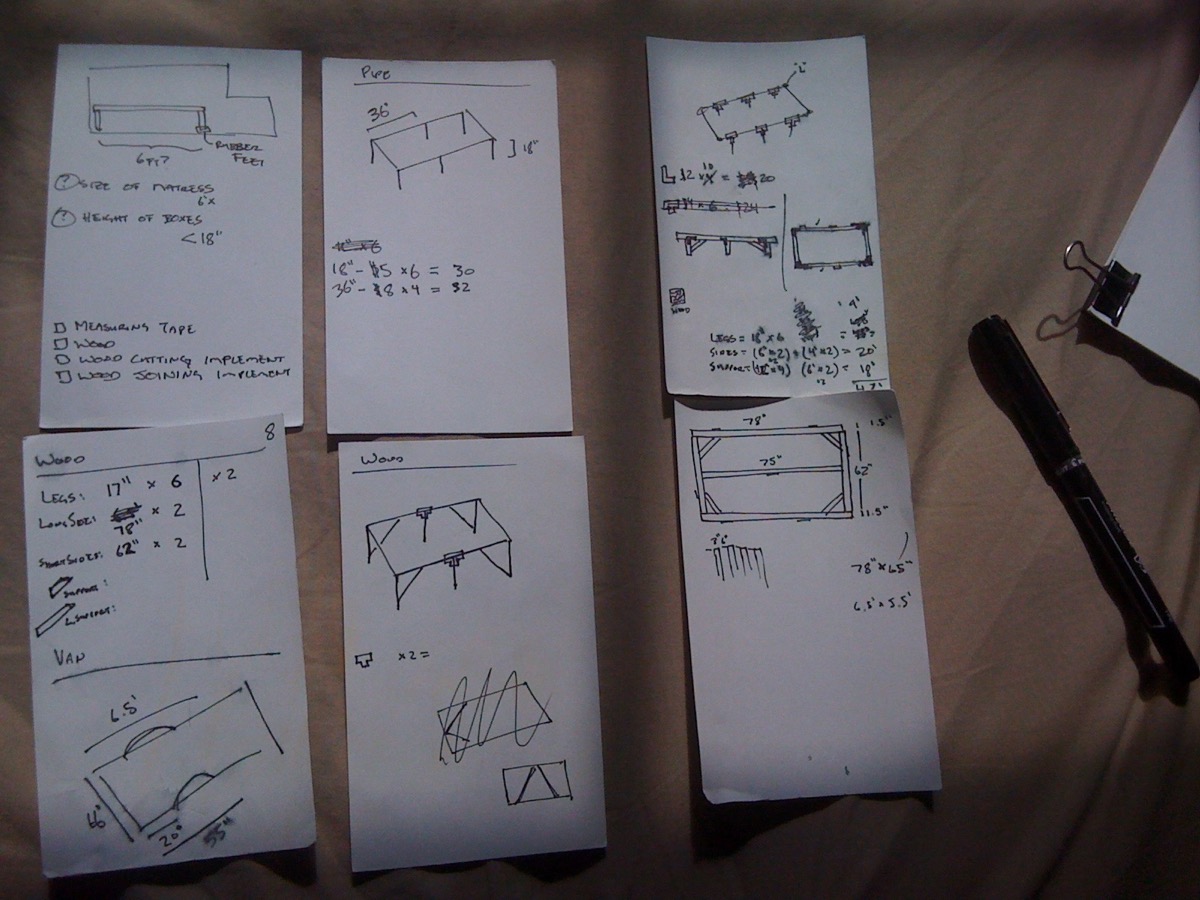 RUBBER
FEET
6FT?
? SIZE OF MATRESS
6'x
? HEIGHT OF BOXES
<18"
MEASURING TAPE
WOOD
WOOD CUTTING IMPLEMENT
WOOD JOINING IMPLEMENT
PIPE
36"
18"
18" - $5 x 6 = 30
36" - $8 x 4 = 32
"L"
L $2 x 10 = 20
LEGS = 18" x 6
SIDES = (6' x 2) + (4' x 2) = 20'
(6' x 2) = 18'
47'
8
WOOD
LEGS: 17" x 6
x 2
LONG SIDES: 78" x 2
SHORT SIDES: 62" x 2
SUPPORT:
L. SUPPORT:
VAN
6.5'
20"
55"
WOOD
x2=
78"
1.5"
75"
62"
1.5"
78" x 65"
6.5' x 5.5'